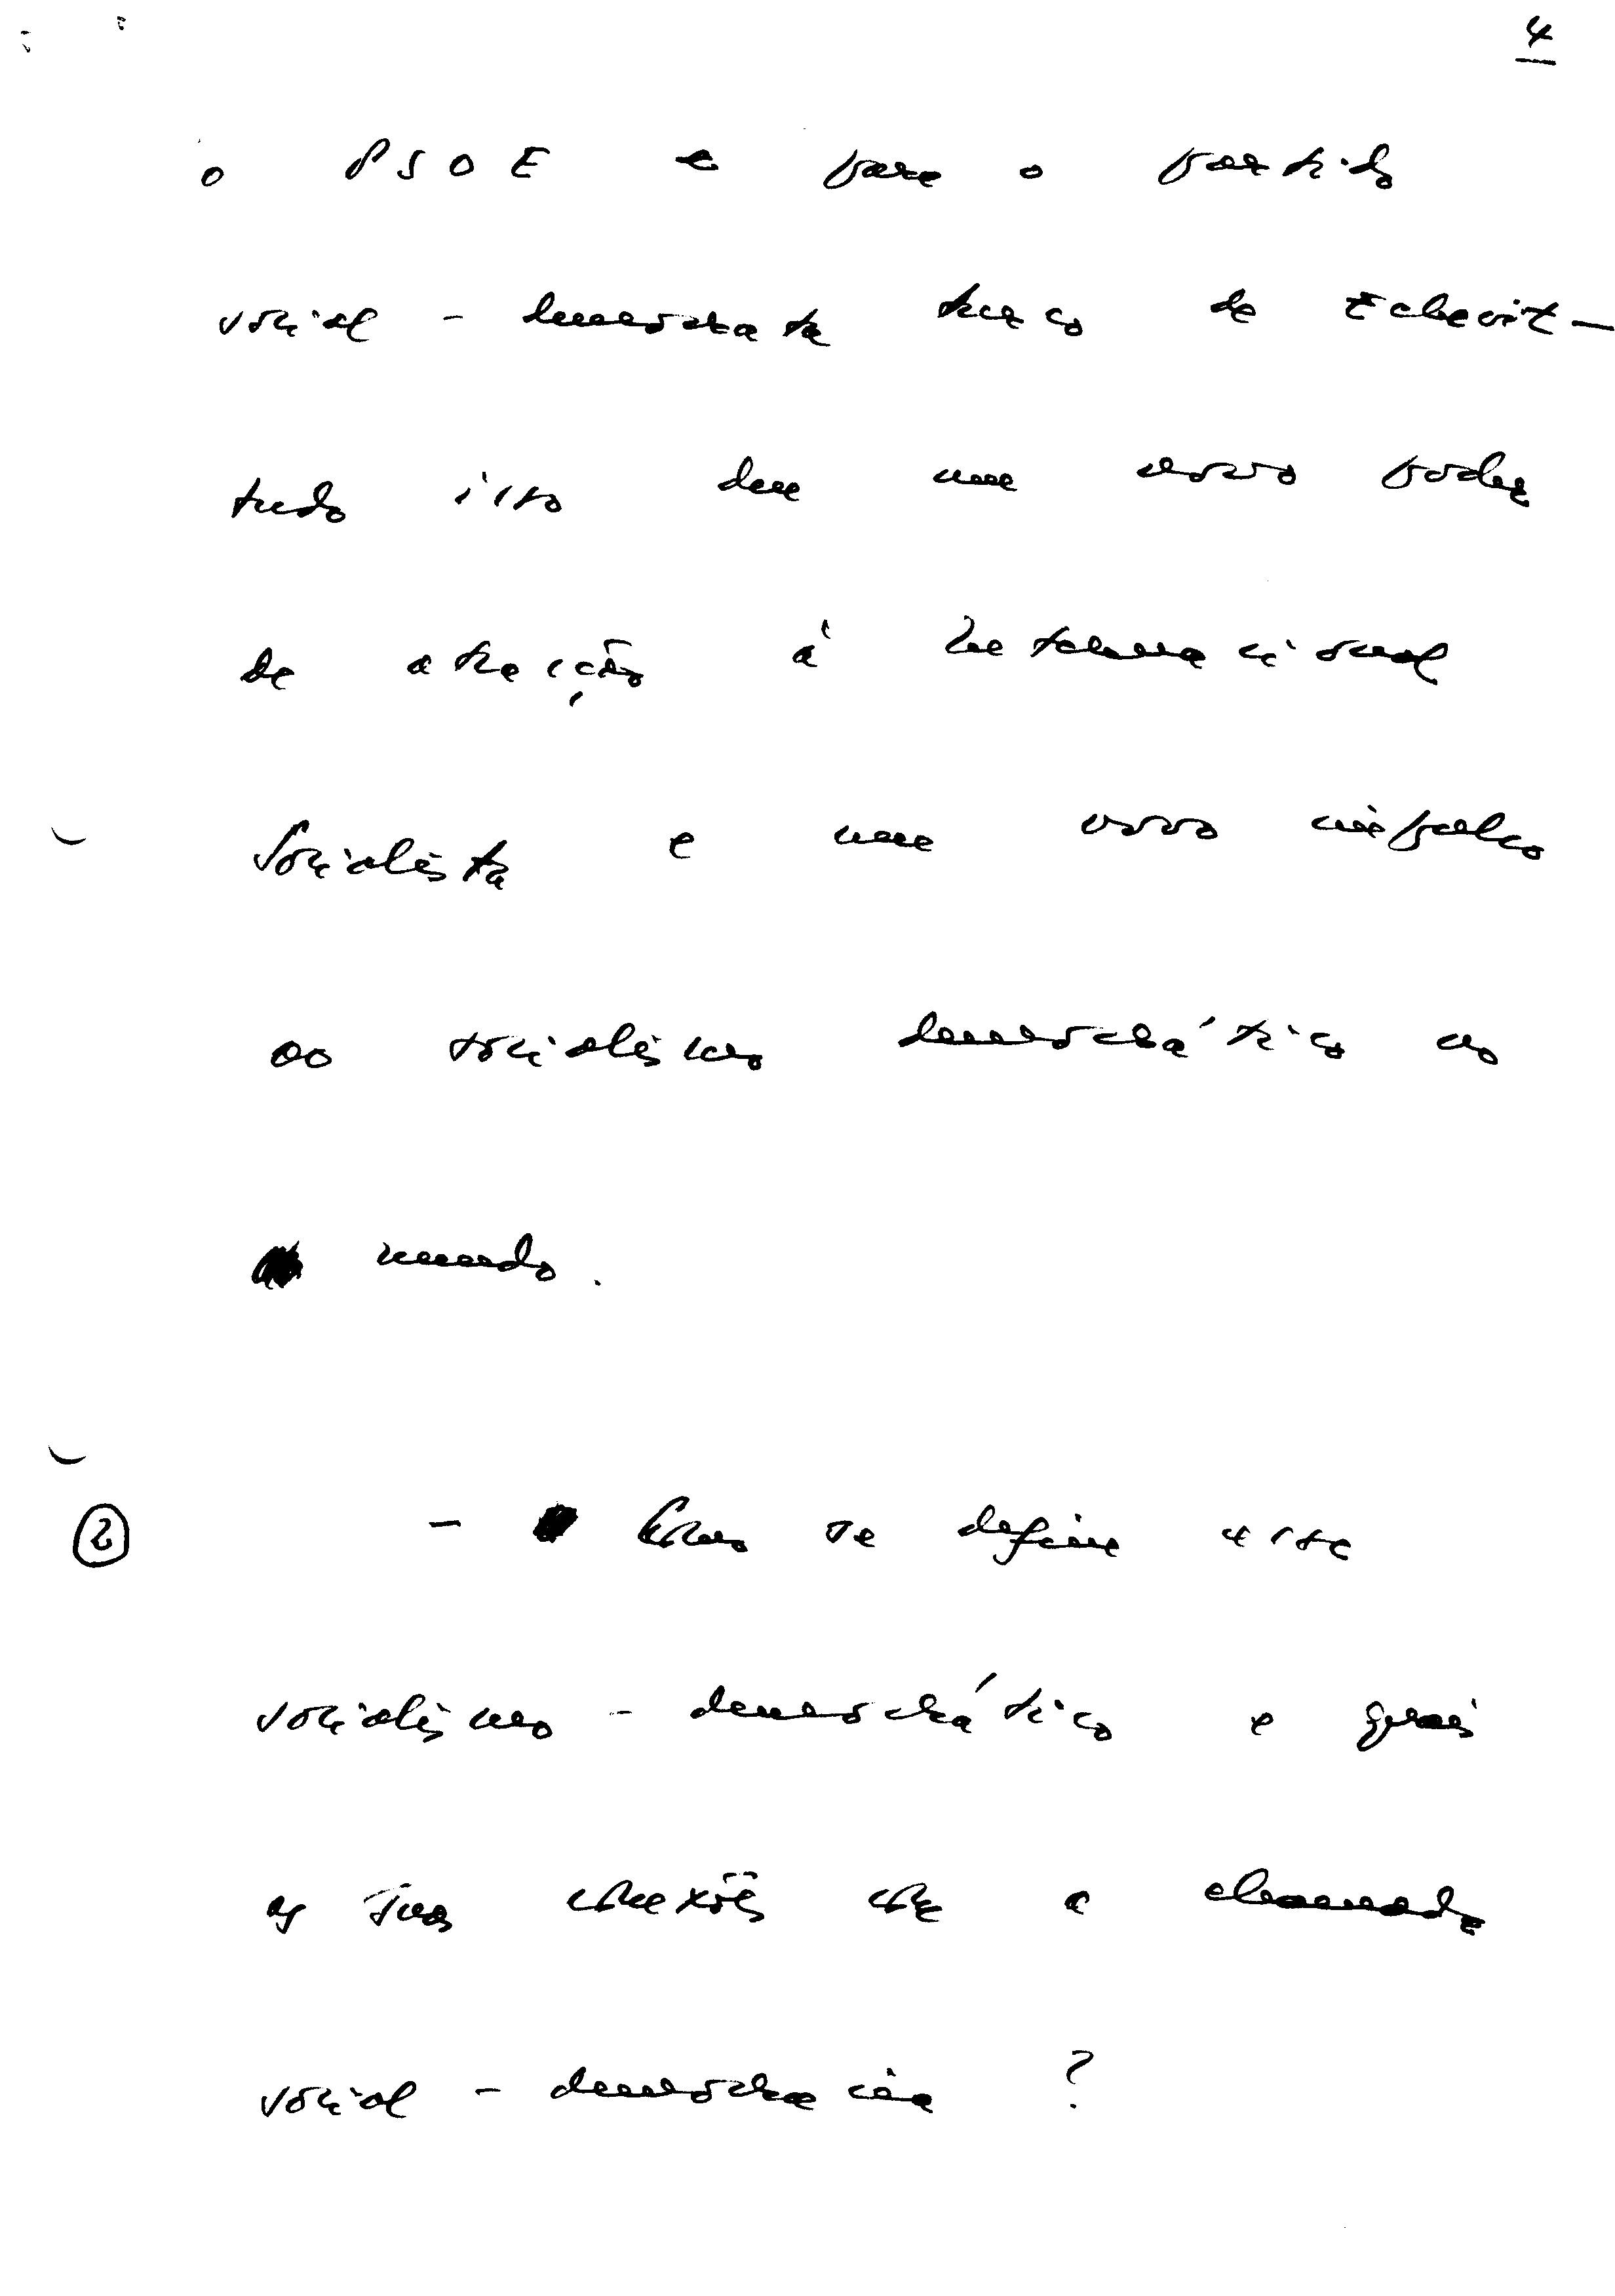 4
o PSOE e para o partido
social - democrata turco de Echevit -
tudo isso deu um novo poder
de atracção à Internacional
Socialista e um novo impulso
ao socialismo democrático no
mundo.
② - Como se define esse
socialismo - democrático e quais
as suas conexões com a chamada
social - democracia ?